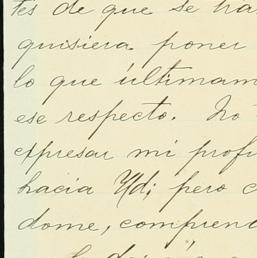 tes de que se ha
quisiera poner
lo que últimam
ese respecto. No
expresar mi prof
hacia Ud; pero c
dome, comprend